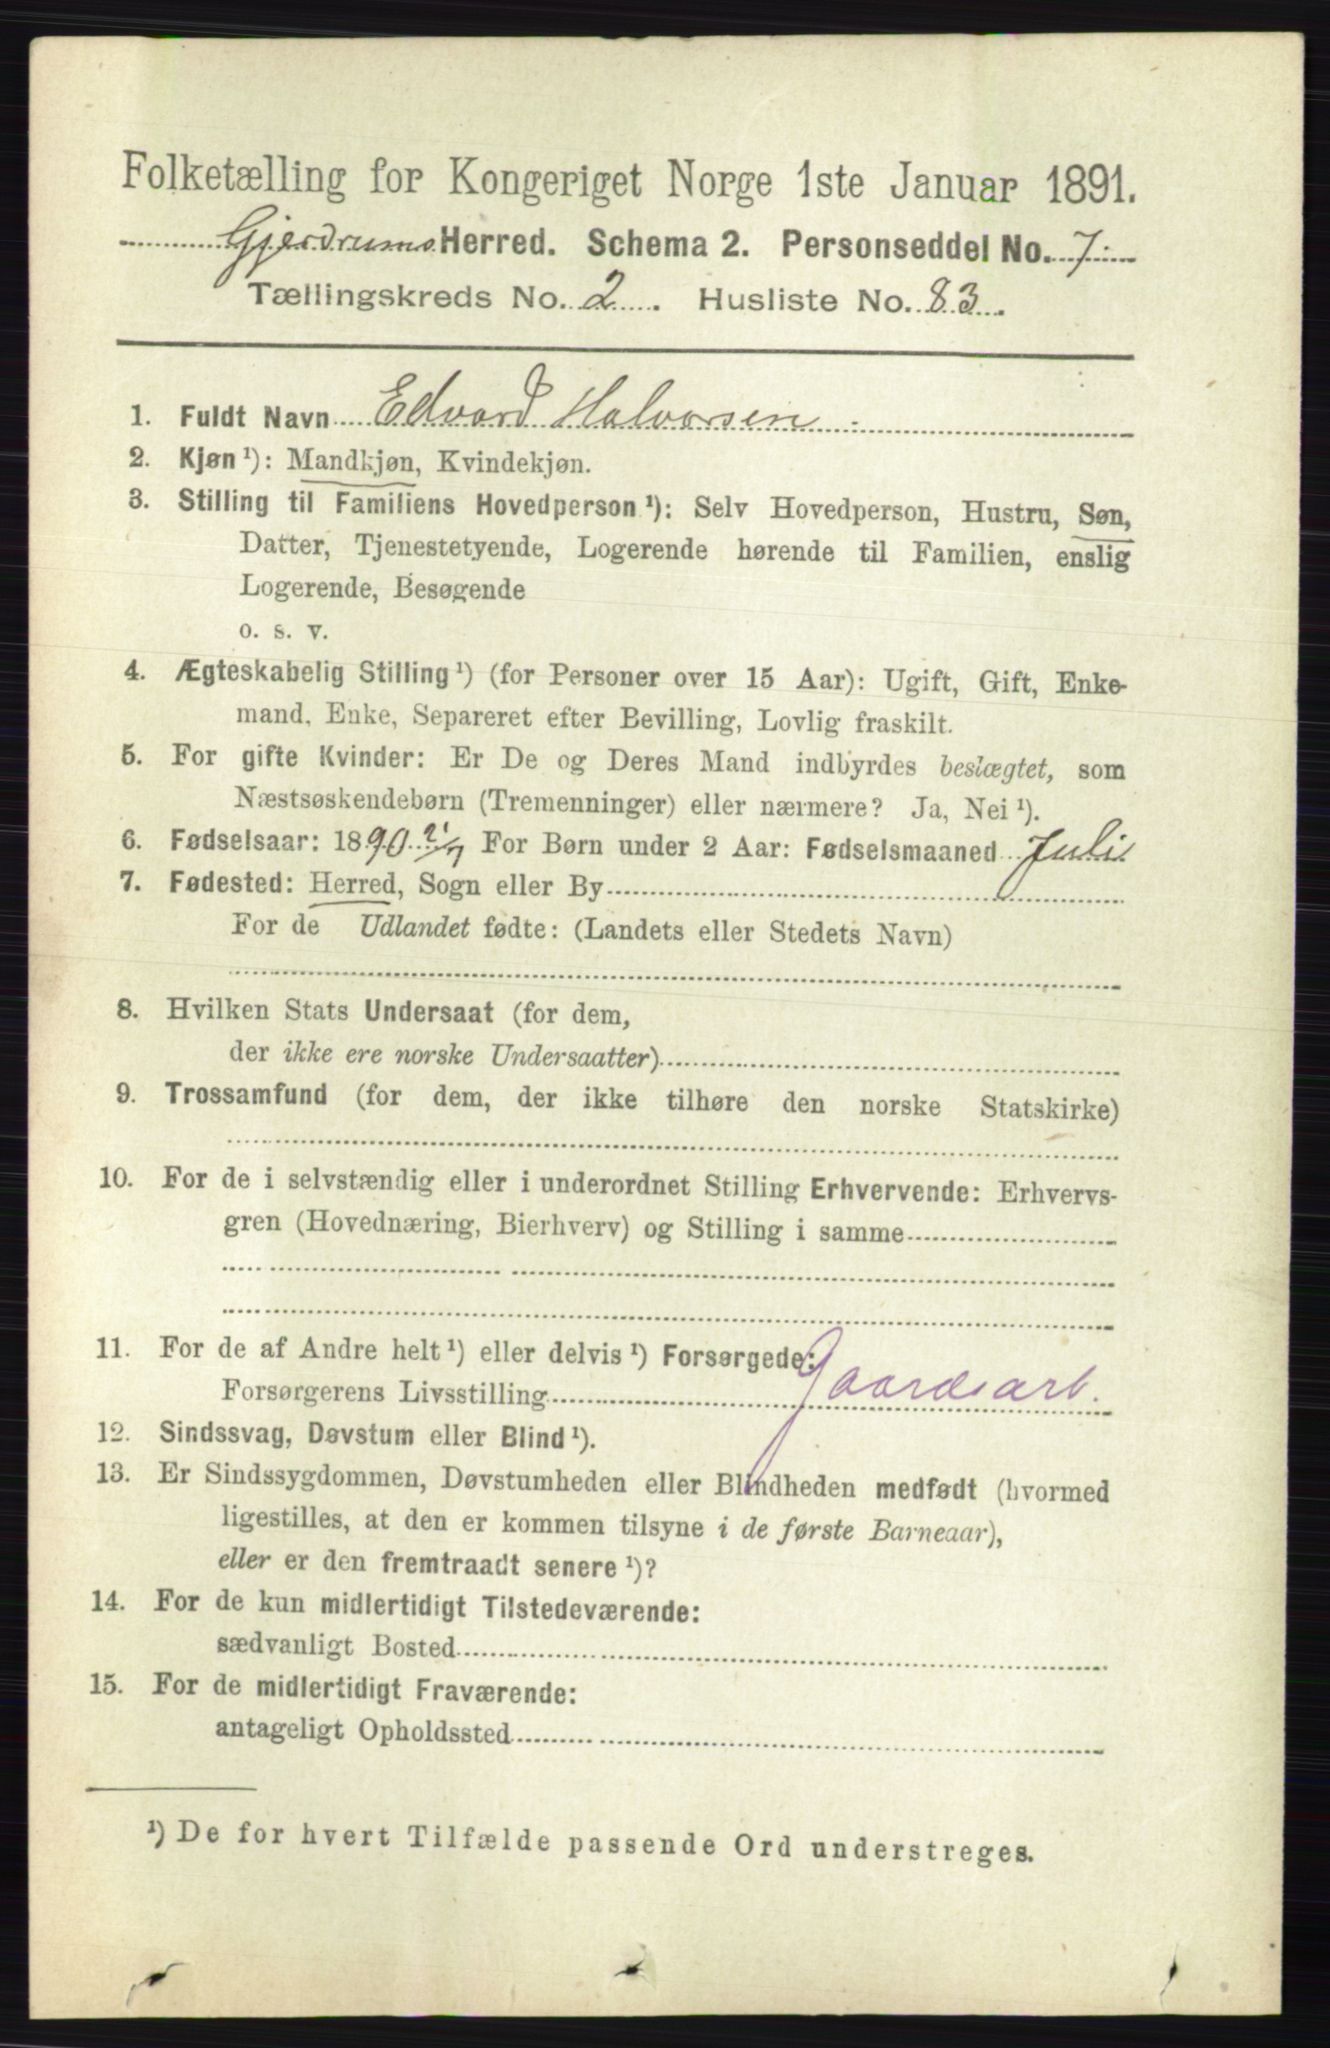 Folketælling for Kongeriget Norge 1ste Januar 1891.
Gjerdrums Herred. Schema 2. Personseddel No. 7
Tællingskreds No. 2. Husliste No. 83.
1. Fuldt Navn Edvard Halvorsen
2. Kjøn ¹): Mandkjøn, Kvindekjøn.
3. Stilling til Familiens Hovedperson ¹): Selv Hovedperson, Hustru, Søn,
Datter, Tjenestetyende, Logerende hørende til Familien, enslig
Logerende, Besøgende
o. s. v.
4. Ægteskabelig Stilling ¹) (for Personer over 15 Aar): Ugift, Gift, Enke-
mand, Enke, Separeret efter Bevilling, Lovlig fraskilt.
5. For gifte Kvinder: Er De og Deres Mand indbyrdes beslægtet, som
Næstsøskendebørn (Tremenninger) eller nærmere? Ja, Nei ¹).
6. Fødselsaar: 1890 21/7 For Børn under 2 Aar: Fødselsmaaned Juli
7. Fødested: Herred, Sogn eller By
For de Udlandet fødte: (Landets eller Stedets Navn)
8. Hvilken Stats Undersaat (for dem,
der ikke ere norske Undersaatter)
9. Trossamfund (for dem, der ikke tilhøre den norske Statskirke)
10. For de i selvstændig eller i underordnet Stilling Erhvervende: Erhvervs-
gren (Hovednæring, Bierhverv) og Stilling i samme
11. For de af Andre helt ¹) eller delvis ¹) Forsørgede:
Forsørgerens Livsstilling Gaardsarb.
12. Sindssvag, Døvstum eller Blind ¹).
13. Er Sindssygdommen, Døvstumheden eller Blindheden medfødt (hvormed
ligestilles, at den er kommen tilsyne i de første Barneaar),
eller er den fremtraadt senere ¹)?
14. For de kun midlertidigt Tilstedeværende:
sædvanligt Bosted
15. For de midlertidigt Fraværende:
antageligt Opholdssted
¹) De for hvert Tilfælde passende Ord understreges.